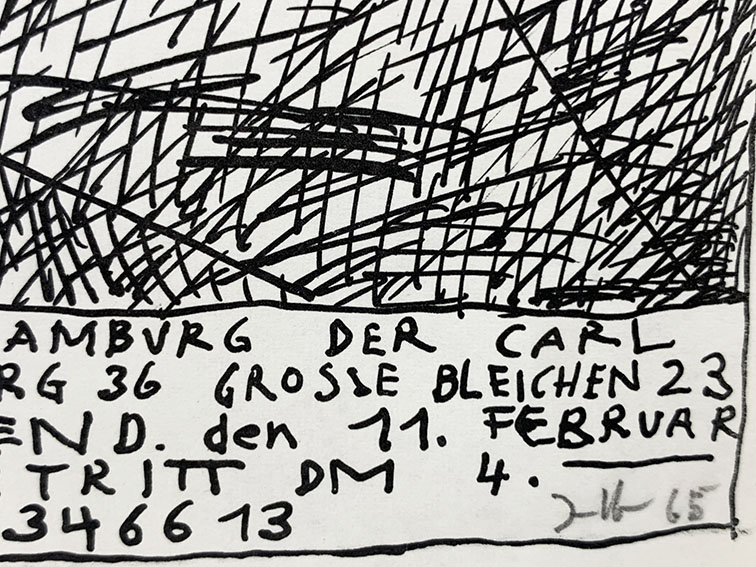 AMBURG DER CARL
RG 36 GROSSE BLEICHEN 23
END. den 11. FEBRUAR
TRITT DM 4.—
346613
65